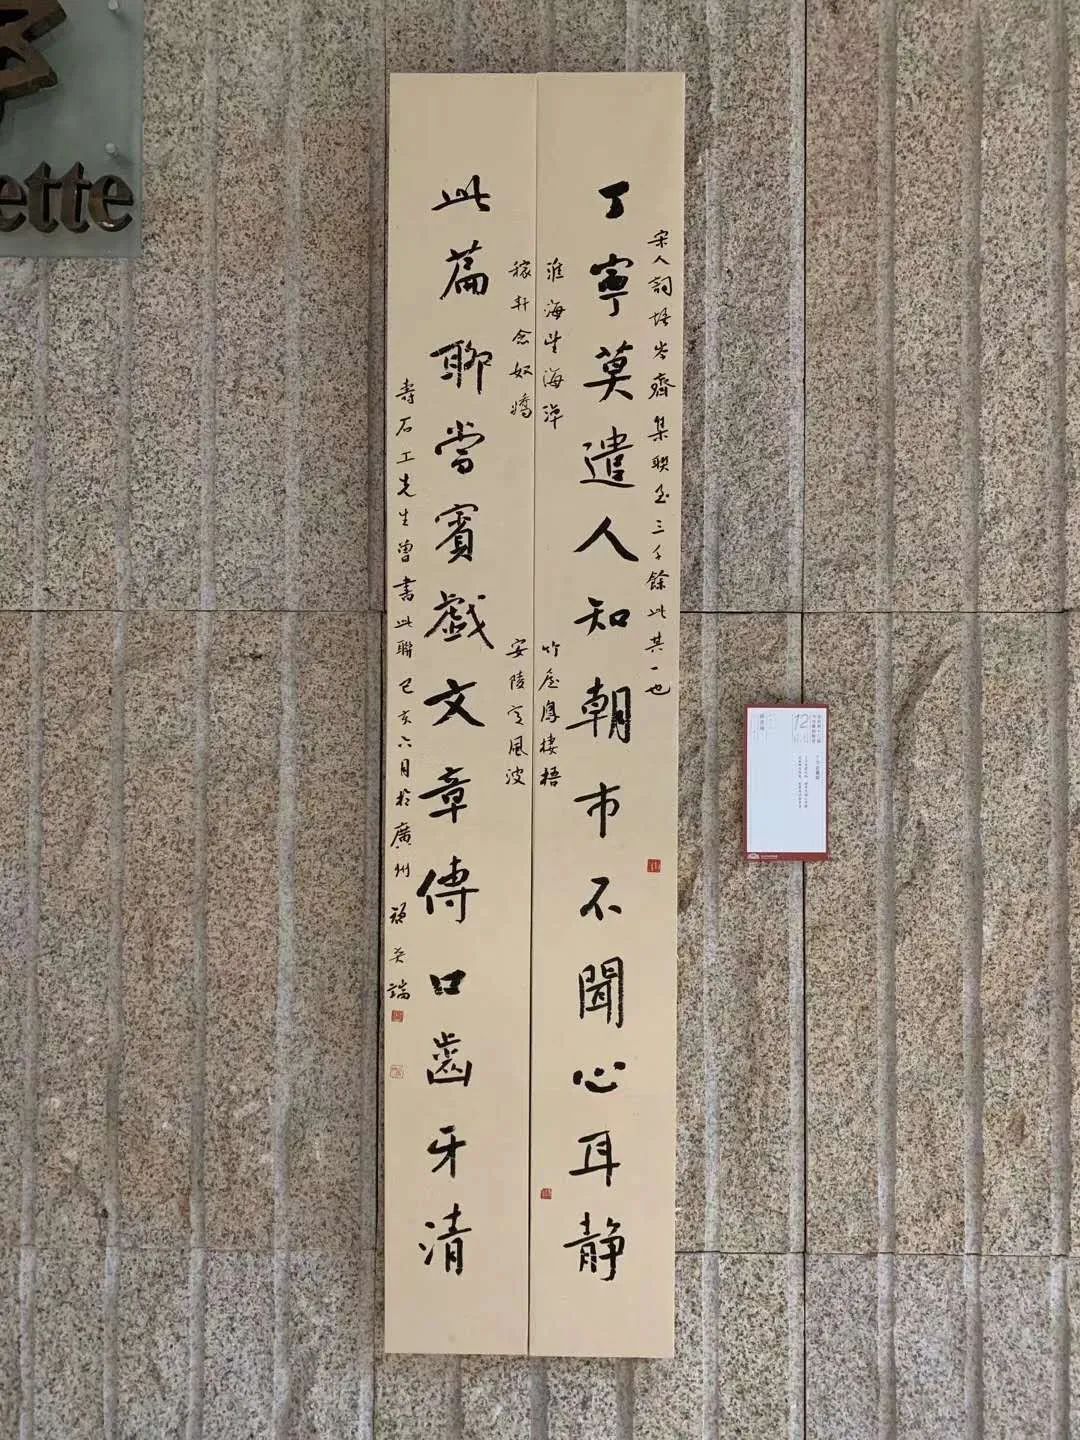 宋人詞悟岑齋集聯至三千餘此其一也
丁寧莫遣人知朝市不聞心耳静
淮海望海潮
竹屋鳳棲梧
稼軒念奴嬌
安陵定風波
此篇聊當賓戲文章傳口齒牙清
壽石工先生曾書此聯己亥六月於廣州
ette
12